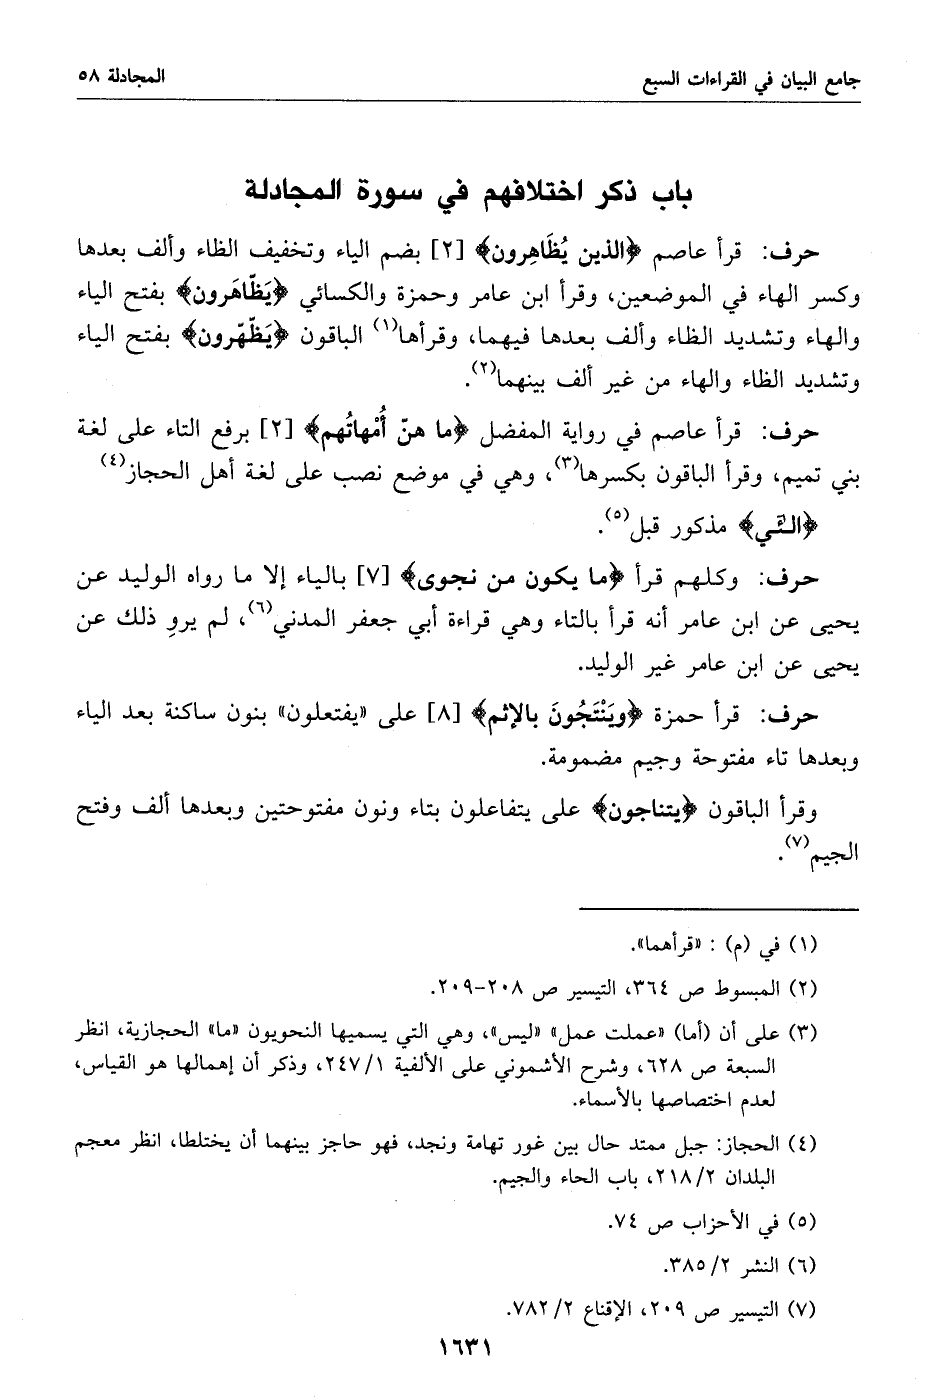 جامع البيان في القراءات السبع
المجادلة ٥٨
باب ذكر اختلافهم في سورة المجادلة
حرف: قرأ عاصم ﴿الذين يُظَاهِرون﴾ [٢] بضم الياء وتخفيف الظاء وألف بعدها
وكسر الهاء في الموضعين، وقرأ ابن عامر وحمزة والكسائي ﴿يَظّاهَرون﴾ بفتح الياء
والهاء وتشديد الظاء وألف بعدها فيهما، وقرأها(١) الباقون ﴿يَظّهّرون﴾ بفتح الياء
وتشديد الظاء والهاء من غير ألف بينهما(٢).
حرف: قرأ عاصم في رواية المفضل ﴿ما هنّ أُمْهاتُهم﴾ [٢] برفع التاء على لغة
بني تميم، وقرأ الباقون بكسرها(٣)، وهي في موضع نصب على لغة أهل الحجاز(٤)
﴿الـٰٔي﴾ مذكور قبل(٥).
حرف: وكلهم قرأ ﴿ما يكون من نجوى﴾ [٧] بالياء إلا ما رواه الوليد عن
يحيى عن ابن عامر أنه قرأ بالتاء وهي قراءة أبي جعفر المدني(٦)، لم يروِ ذلك عن
يحيى عن ابن عامر غير الوليد.
حرف: قرأ حمزة ﴿ويَنْتَجُونَ بالإثم﴾ [٨] على «يفتعلون» بنون ساكنة بعد الياء
وبعدها تاء مفتوحة وجيم مضمومة.
وقرأ الباقون ﴿يتناجون﴾ على يتفاعلون بتاء ونون مفتوحتين وبعدها ألف وفتح
الجيم(٧).
(١) في (م) : «قرأهما».
(٢) المبسوط ص ٣٦٤، التيسير ص ٢٠٨-٢٠٩.
(٣) على أن (أما) «عملت عمل» «ليس»، وهي التي يسميها النحويون «ما» الحجازية، انظر
السبعة ص ٦٢٨، وشرح الأشموني على الألفية ٢٤٧/١، وذكر أن إهمالها هو القياس،
لعدم اختصاصها بالأسماء.
(٤) الحجاز: جبل ممتد حال بين غور تهامة ونجد، فهو حاجز بينهما أن يختلطا، انظر معجم
البلدان ٢١٨/٢، باب الحاء والجيم.
(٥) في الأحزاب ص ٧٤.
(٦) النشر ٣٨٥/٢.
(٧) التيسير ص ٢٠٩، الإقناع ٧٨٢/٢.
١٦٣١